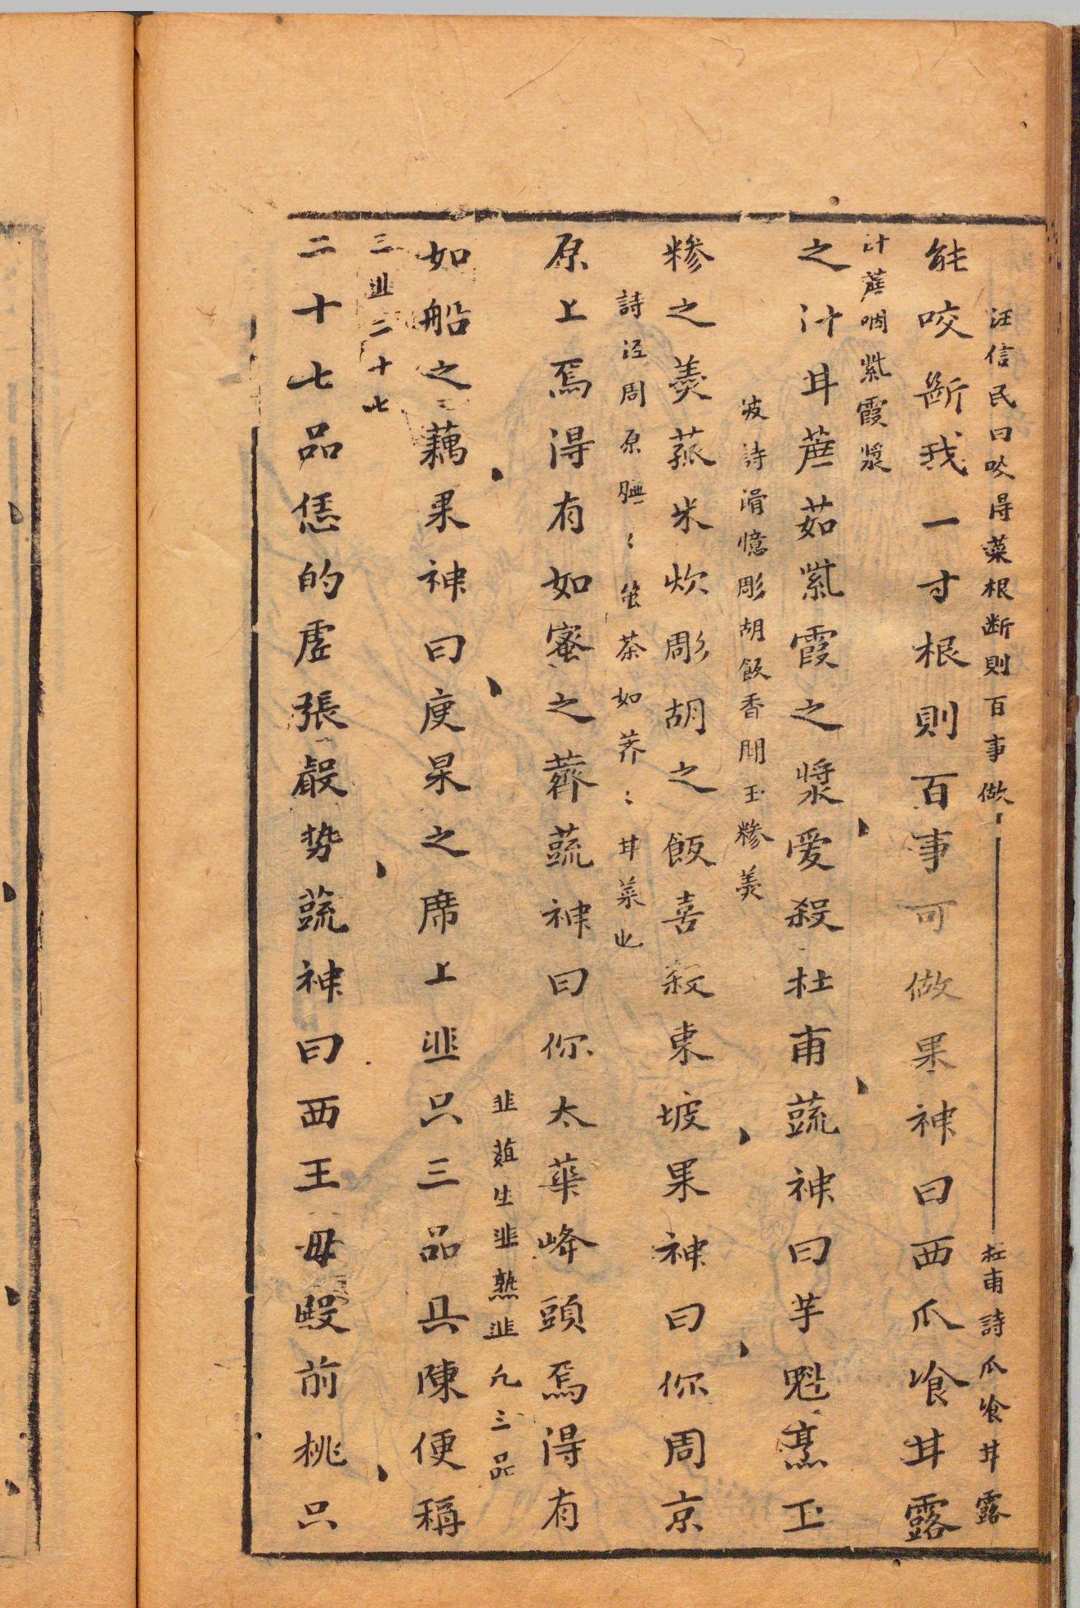 汪信民曰咬得菜根断則百事做　杜甫詩瓜飡甘露
能咬斷我一寸根則百事可做果神曰西瓜飡甘露
汁蔗咽紫霞漿
之汁甘蔗茹紫霞之漿愛殺杜甫蔬神曰芋魁烹玉
坡詩滑憶彫胡飯香聞玉糝羹
糝之羹蒸米炊彫胡之飯喜殺東坡果神曰你周京
詩涇周原膴〻堇荼如荠〻甘菜也
原上焉得有如蜜之薺蔬神曰你太華峰頭焉得有
韭葅生韭熟韭凢三品
如船之藕果神曰庾杲之席上韭只三品具陳便稱
三韭二十七
二十七品恁的虗張聲势蔬神曰西王母殿前桃只